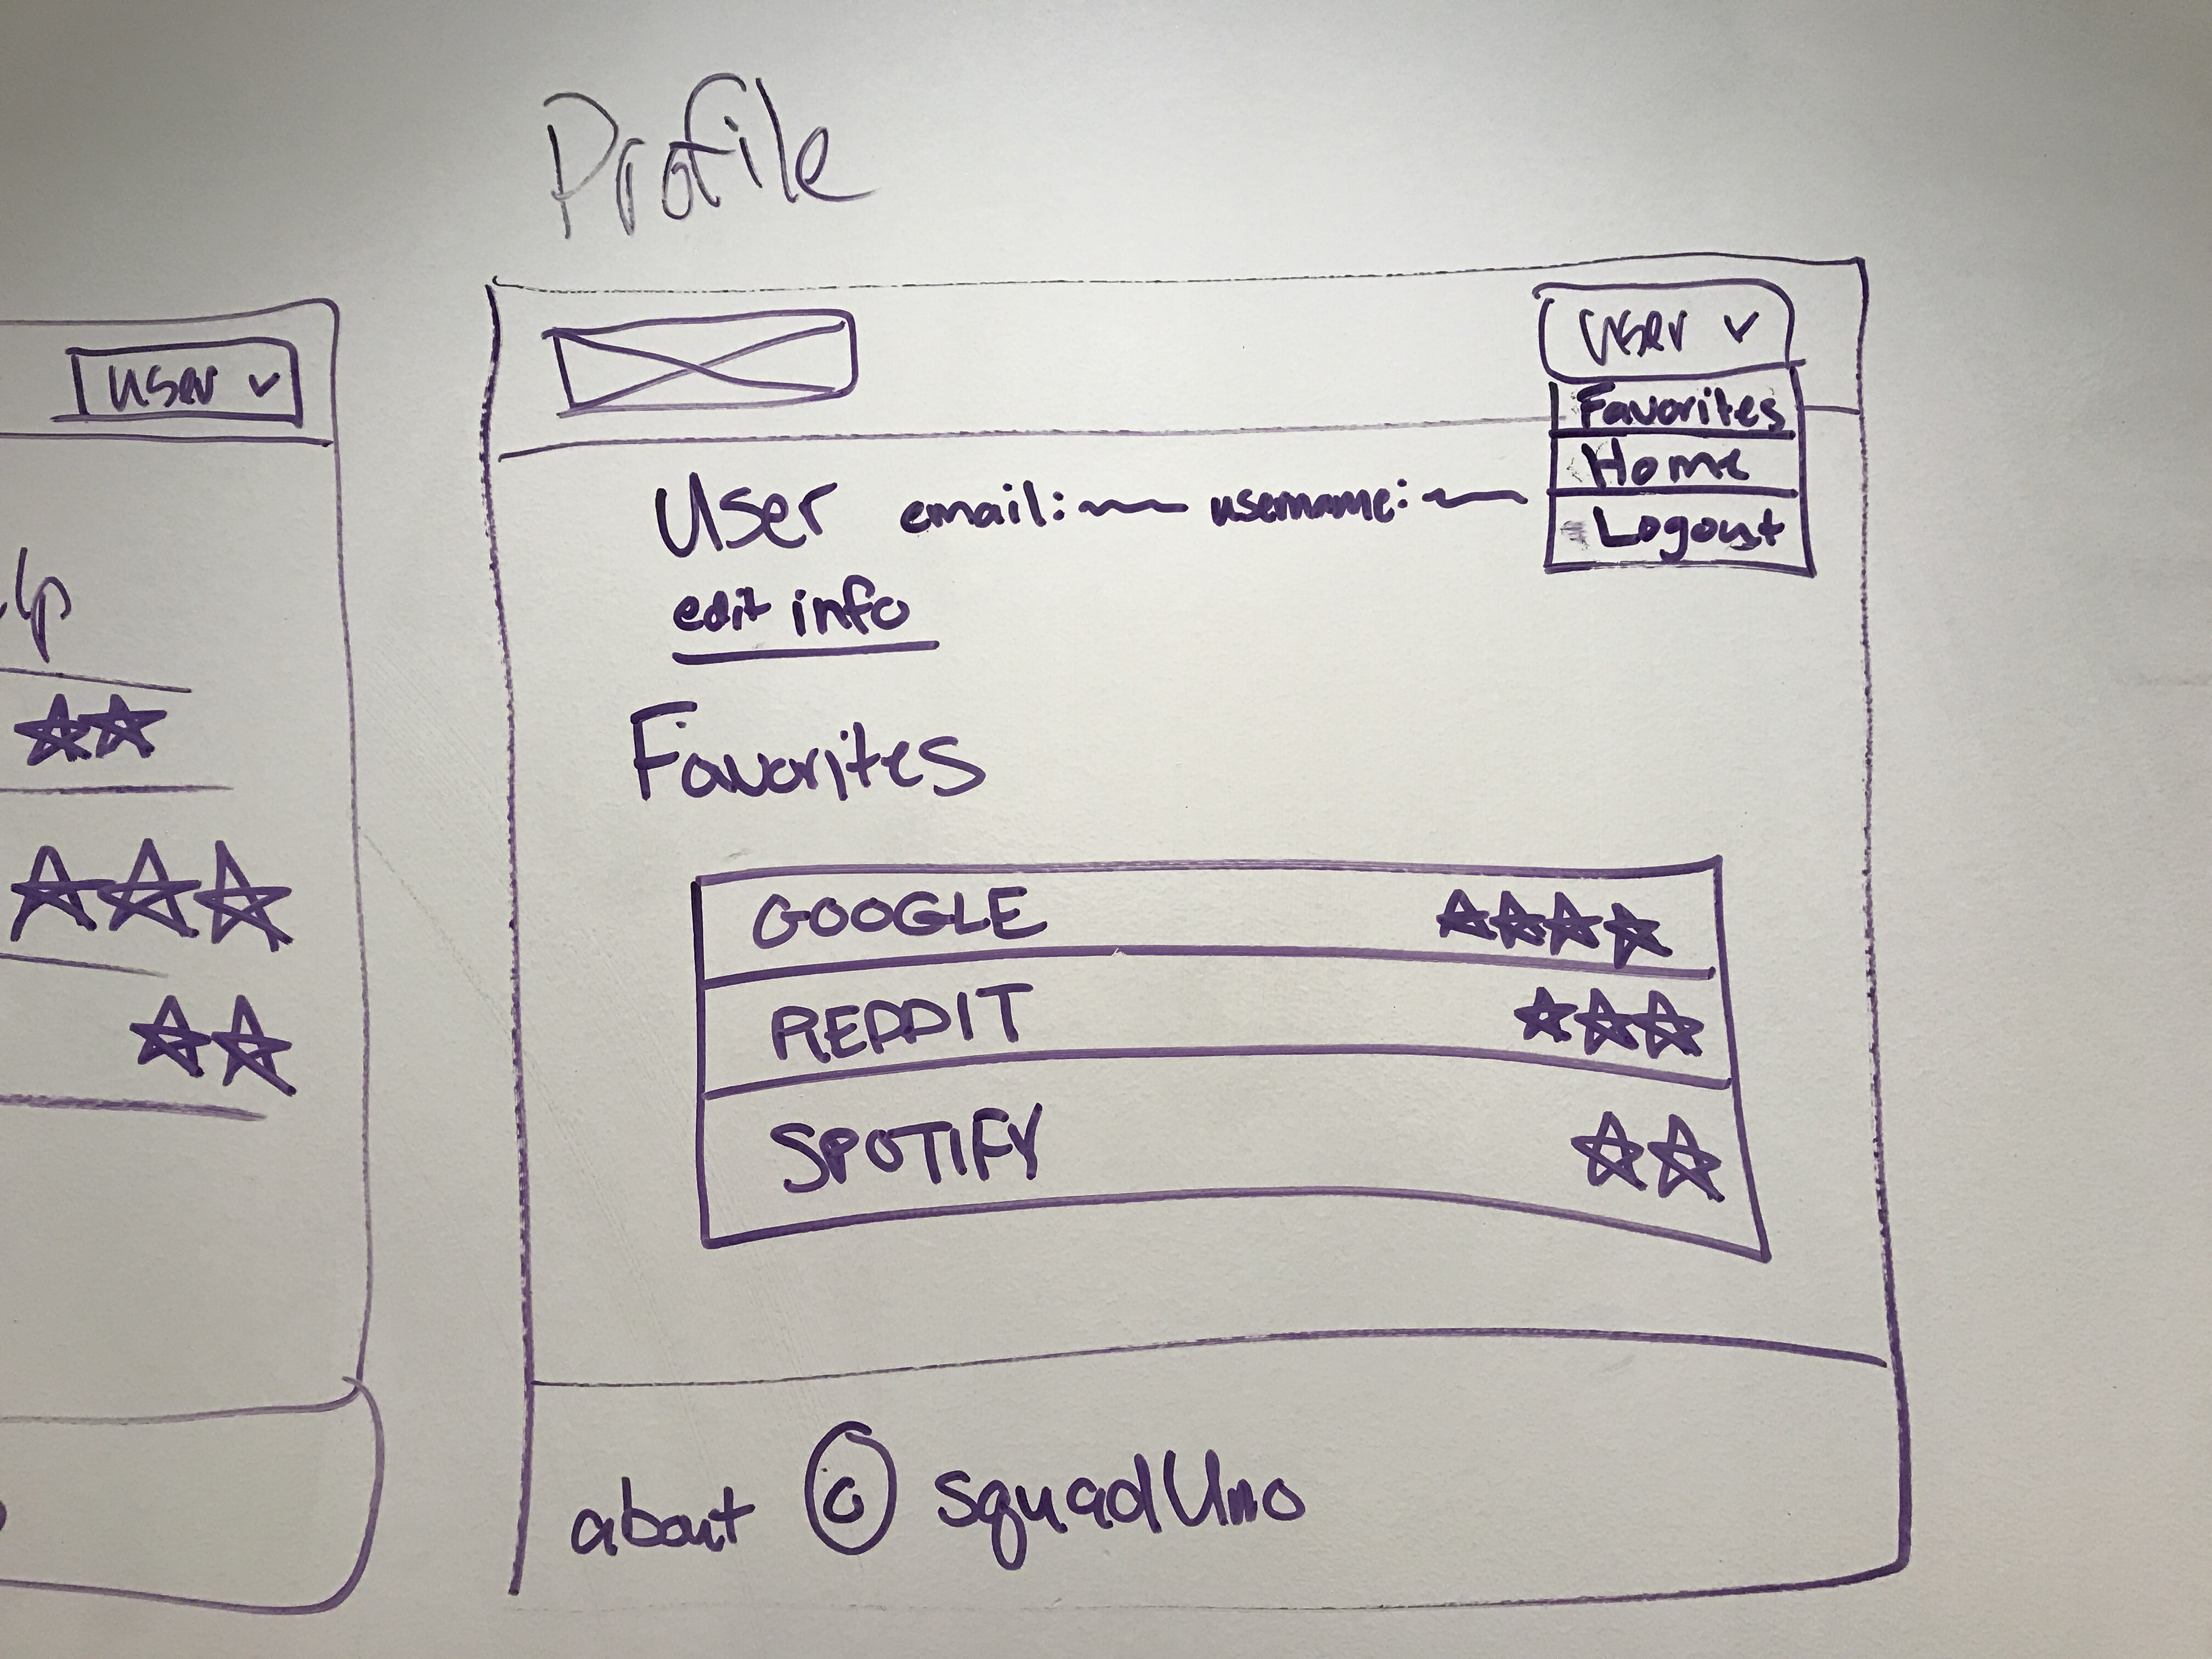 Profile
user
User
Favorites
Home
Logout
User email: username:
edit info
Favorites
GOOGLE
REDDIT
SPOTIFY
about © squadUno